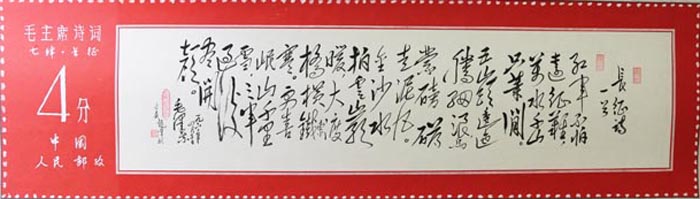 毛主席诗词
七律·长征
4分
中国
人民邮政
长征诗
一首
红军不怕
远征难
万水千山
只等闲
五岭逶迤
腾细浪乌
蒙磅礴
走泥丸
金沙水
拍云崖
暖大渡
桥横铁索
寒更喜
岷山千里
雪三军
过后
尽开
颜
毛泽东